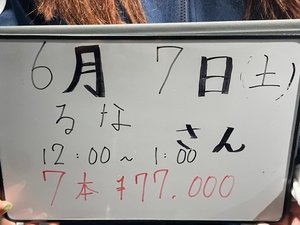 6月7日(土)
るなさん
12:00~1:00
7本 ¥77.000